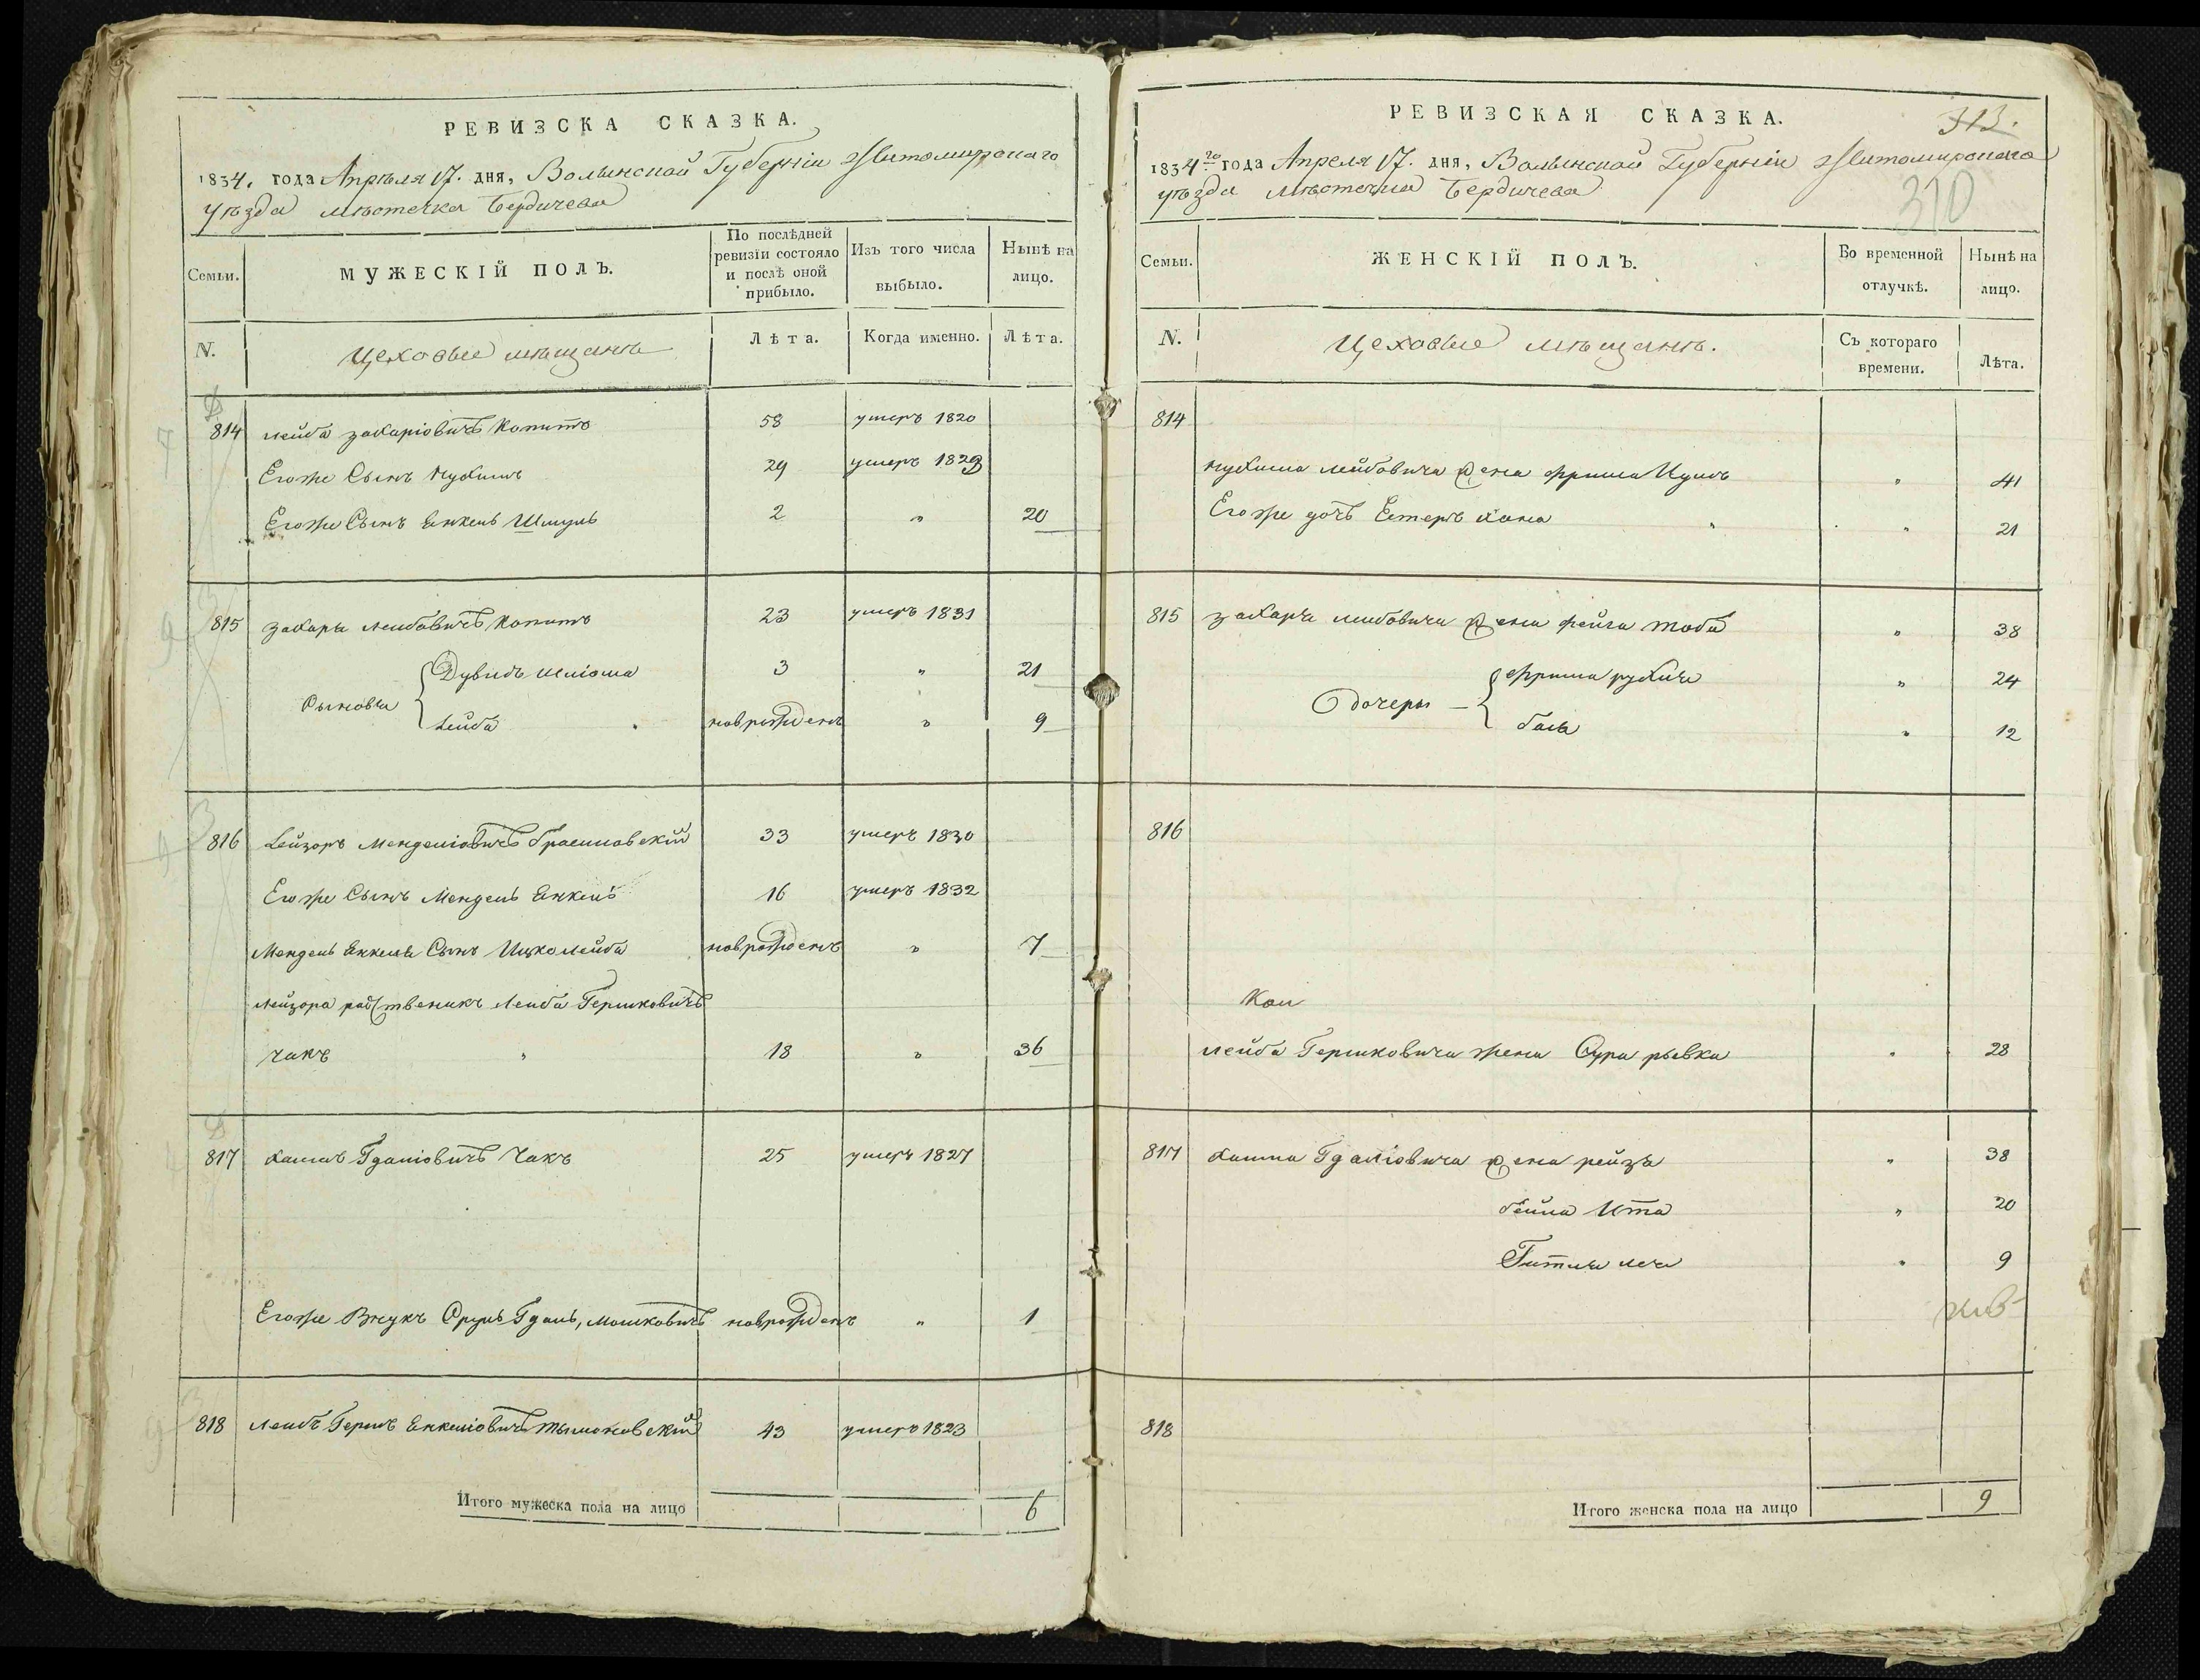 РЕВИЗСКА СКАЗКА.
1834. года Апрѣля 17. дня, Волынской Губерніи Житомирскаго
уѣзда мѣстечка Бердичева
Семьи.
МУЖЕСКІЙ ПОЛЪ.
По послѣдней ревизіи состояло и послѣ оной прибыло.
Изъ того числа выбыло.
Нынѣ на лицо.
N.
Цеховые мѣщанѣ
Лѣта.
Когда именно.
Лѣта.
814 Лейба Захаріовичъ Копитъ 58 умеръ 1820
Егоже Сынъ Нухимъ 29 умеръ 1829
Егоже Сынъ Енкель Шмуль 2 " 20
815 Захарь Лейбовичъ Копитъ 23 умеръ 1831
Сыновья
Дувидъ Шліома 3 " 21
Лейба новрожденъ " 9
816 Лейзоръ Менделіовичъ 33 умеръ 1830
Егоже Сынъ Мендель Енкель 16 умеръ 1832
Мендель Енкеля Сынъ Ицко Лейба новрожденъ " 7
Лейзора родственикъ Лейба Гершковичъ
Чакъ " 18 " 36
817 Хаимъ Гдаліовичъ Чакъ 25 умеръ 1827
Егоже Внукъ Сруль Гдаль, Мошковичъ новрожденъ " 1
818 Лейбъ Гершъ Енкеліовичъ 43 умеръ 1823
Итого мужеска пола на лицо 6
РЕВИЗСКАЯ СКАЗКА.
313.
310
1834го года Апреля 17. дня, Волынской Губерніи Житомирскаго
уѣзда мѣстечка Бердичева
Семьи.
ЖЕНСКІЙ ПОЛЪ.
Во временной отлучкѣ.
Нынѣ на лицо.
N.
Цеховые мѣщанѣ.
Съ котораго времени.
Лѣта.
814
Нухима Лейбовича жена Фрима " 41
Егоже дочь Естеръ Хана " " 21
815 Захаря Лейбовича жена Фейга Тоба " 38
дочеры
Фрима Рухля " 24
бася " 12
816
Лейба Гершковича жена Сура рывка " 28
817 Хаима Гдаліовича жена рейзя " 38
бейла Ита " 20
Гитля Лея " 9
818
Итого женска пола на лицо 9